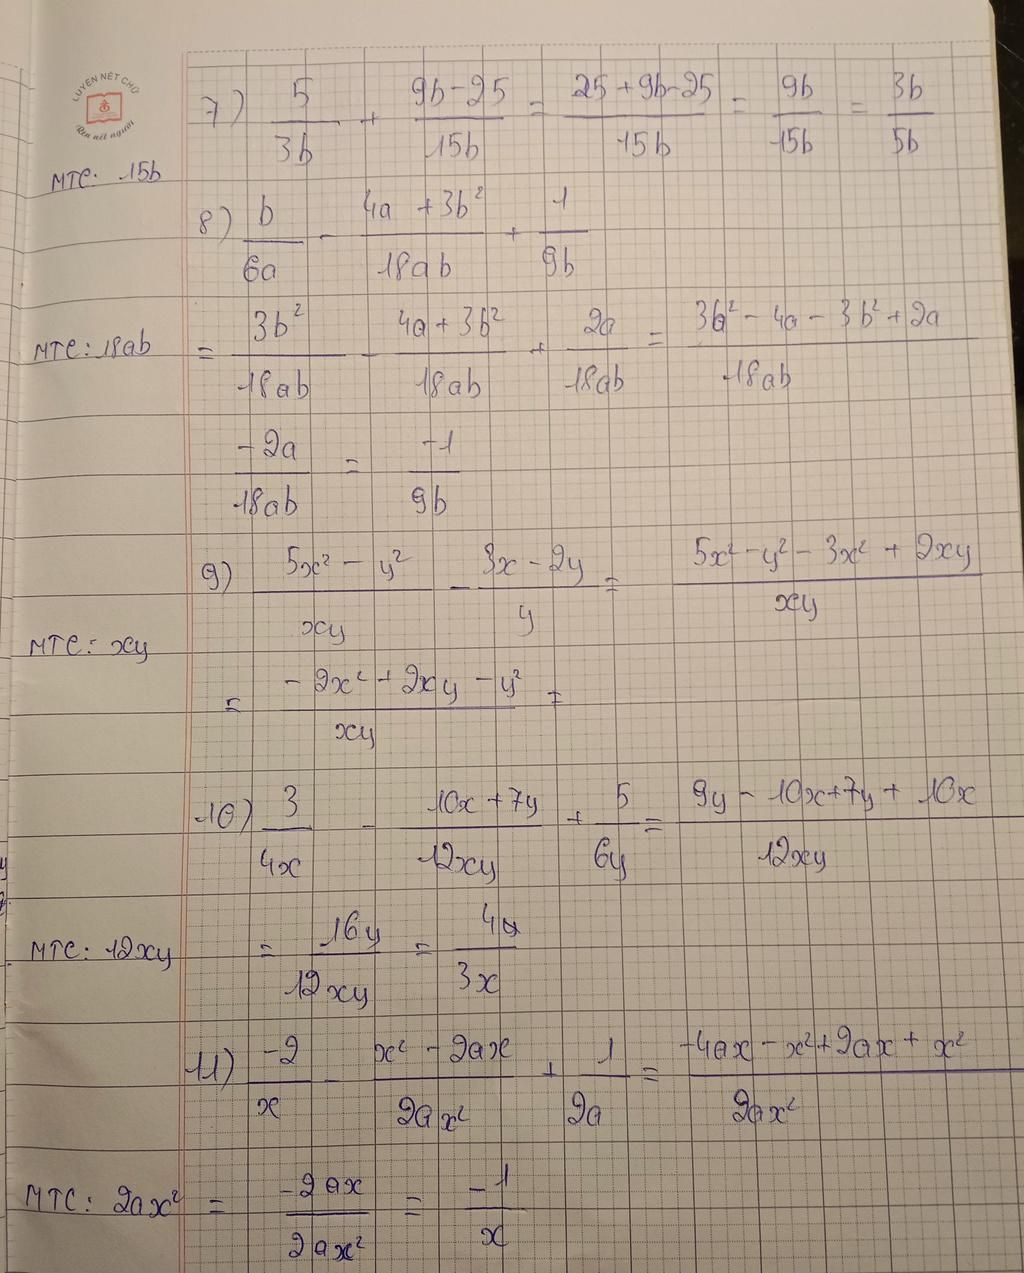 LUYỆN NÉT CHỮ
Rèn nết người
7) 5/3b + 9b-25/15b = 25+9b-25/15b = 9b/15b = 3b/5b
MTC: 15b
8) b/6a - 4a+3b²/18ab + 1/9b
MTC: 18ab = 3b²/18ab - 4a+3b²/18ab + 2a/18ab = 3b²-4a-3b²+2a/18ab
-2a/18ab = -1/9b
9) 5x²-y²/xy - 3x-2y/y = 5x²-y²-3x²+2xy/xy
MTC: xy
= -2x²+2xy-y²/xy =
10) 3/4x - 10x+7y/12xy + 5/6y = 9y-10x+7y+10x/12xy
MTC: 12xy = 16y/12xy = 4y/3x
11) -2/x - x²-2ax/2ax² + 1/2a = -4ax-x²+2ax+x²/2ax²
MTC: 2ax² = -2ax/2ax² = -1/x